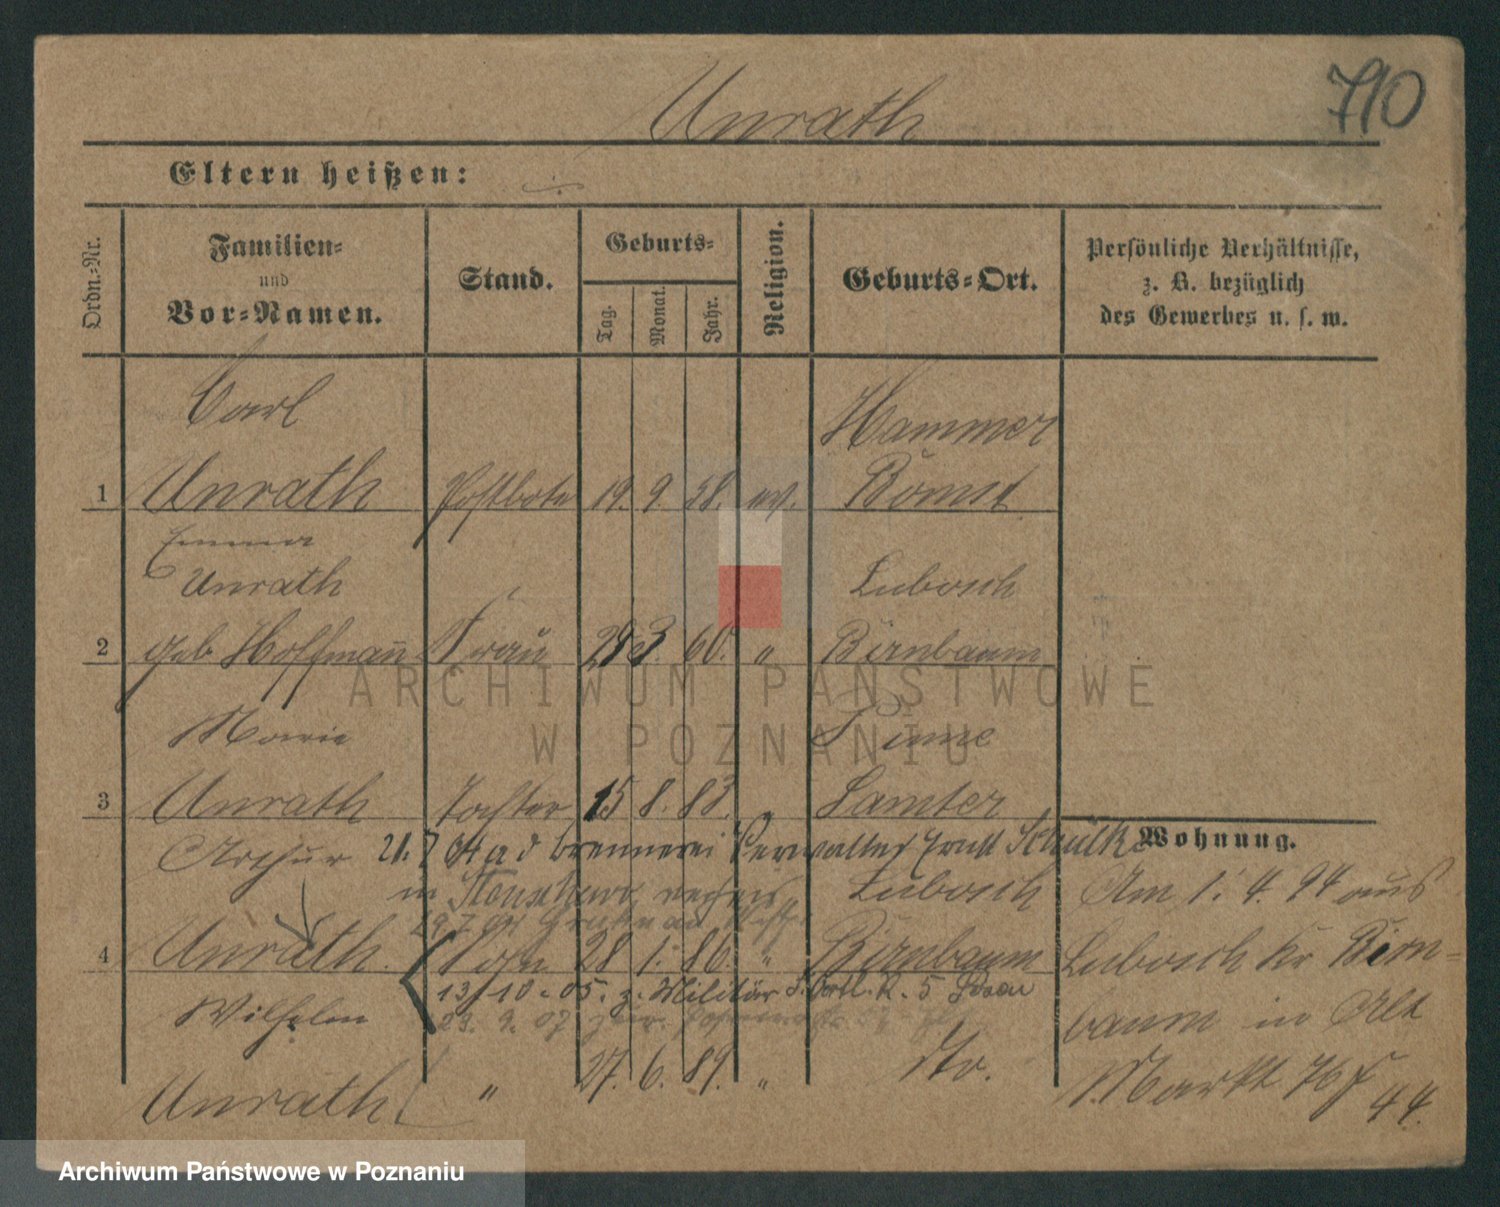 710
Unrath
Eltern heißen:
Ordn.-Nr.
Familien-
und
Vor-Namen.
Stand.
Geburts-
Tag.
Monat.
Jahr.
Religion.
Geburts-Ort.
Persönliche Verhältnisse,
z. B. bezüglich
des Gewerbes u. s. w.
Carl
Hammer
1 Unrath Postbote 19. 9. 58. ev. Bomst
Emma
Unrath
Lubosch
2 geb Hoffmann Frau 29 3. 60. " Birnbaum
Marie
Pinne
3 Unrath Tochter 15 8. 83. " Samter
Wohnung.
Arthur 21. 7 04 a d Brennerei Verwalter Ernst Schulk
in
Lubosch
Am 1. 4. 94 aus
29.7.04
4 Unrath. Sohn 28 1. 86. " Birnbaum
Lubosch Kr Birn-
13/10. 05. z. Militär
Wilhelm
23. 9. 07
baum in Alt
27. 6. 89. " dto.
Markt 76/
44.
Unrath "
ARCHIWUM PAŃSTWOWE
W POZNANIU
Archiwum Państwowe w Poznaniu